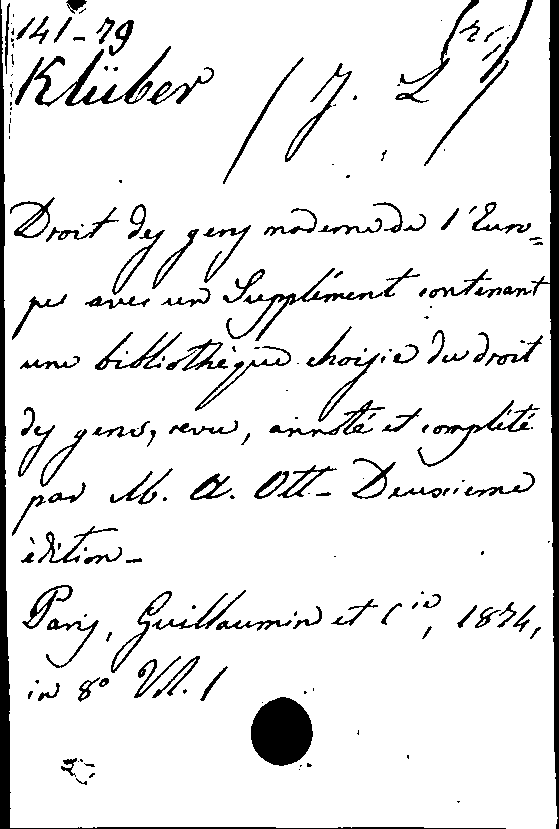 141-79
Klüber (J. L.)
Droit des gens moderne de l'Euro=
pe avec un Supplément contenant
une bibliothèque choisie du droit
des gens, revu, annoté et complété
par M. A. Ott - Deuxieme
èdition -
Paris, Guillaumin et Cie, 1874,
in 8° Vol. 1